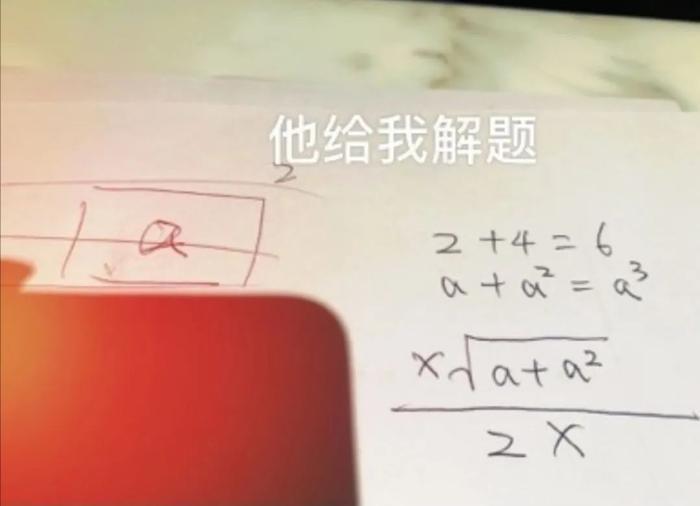 他给我解题
2
a
2+4=6
a+a²=a³
x√a+a²
2x